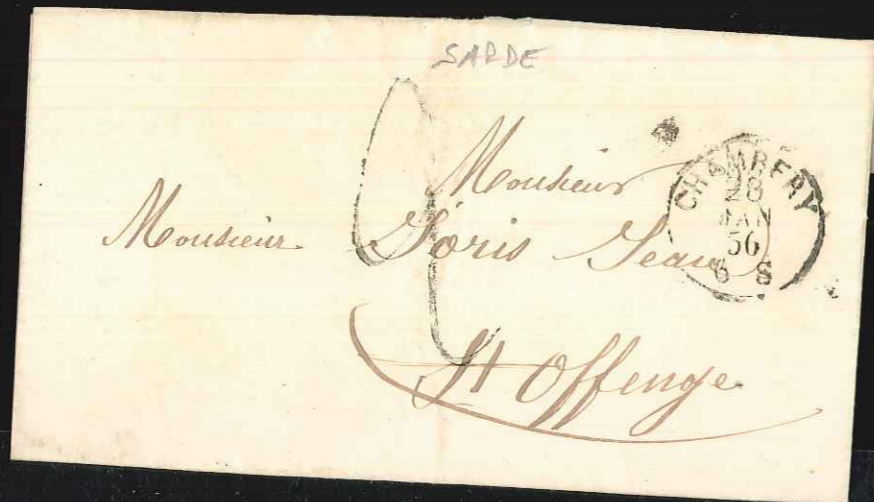 SARDE
Monsieur
Monsieur Joris Jean
St Offenge
CHAMBERY
28
JAN
56
6 S